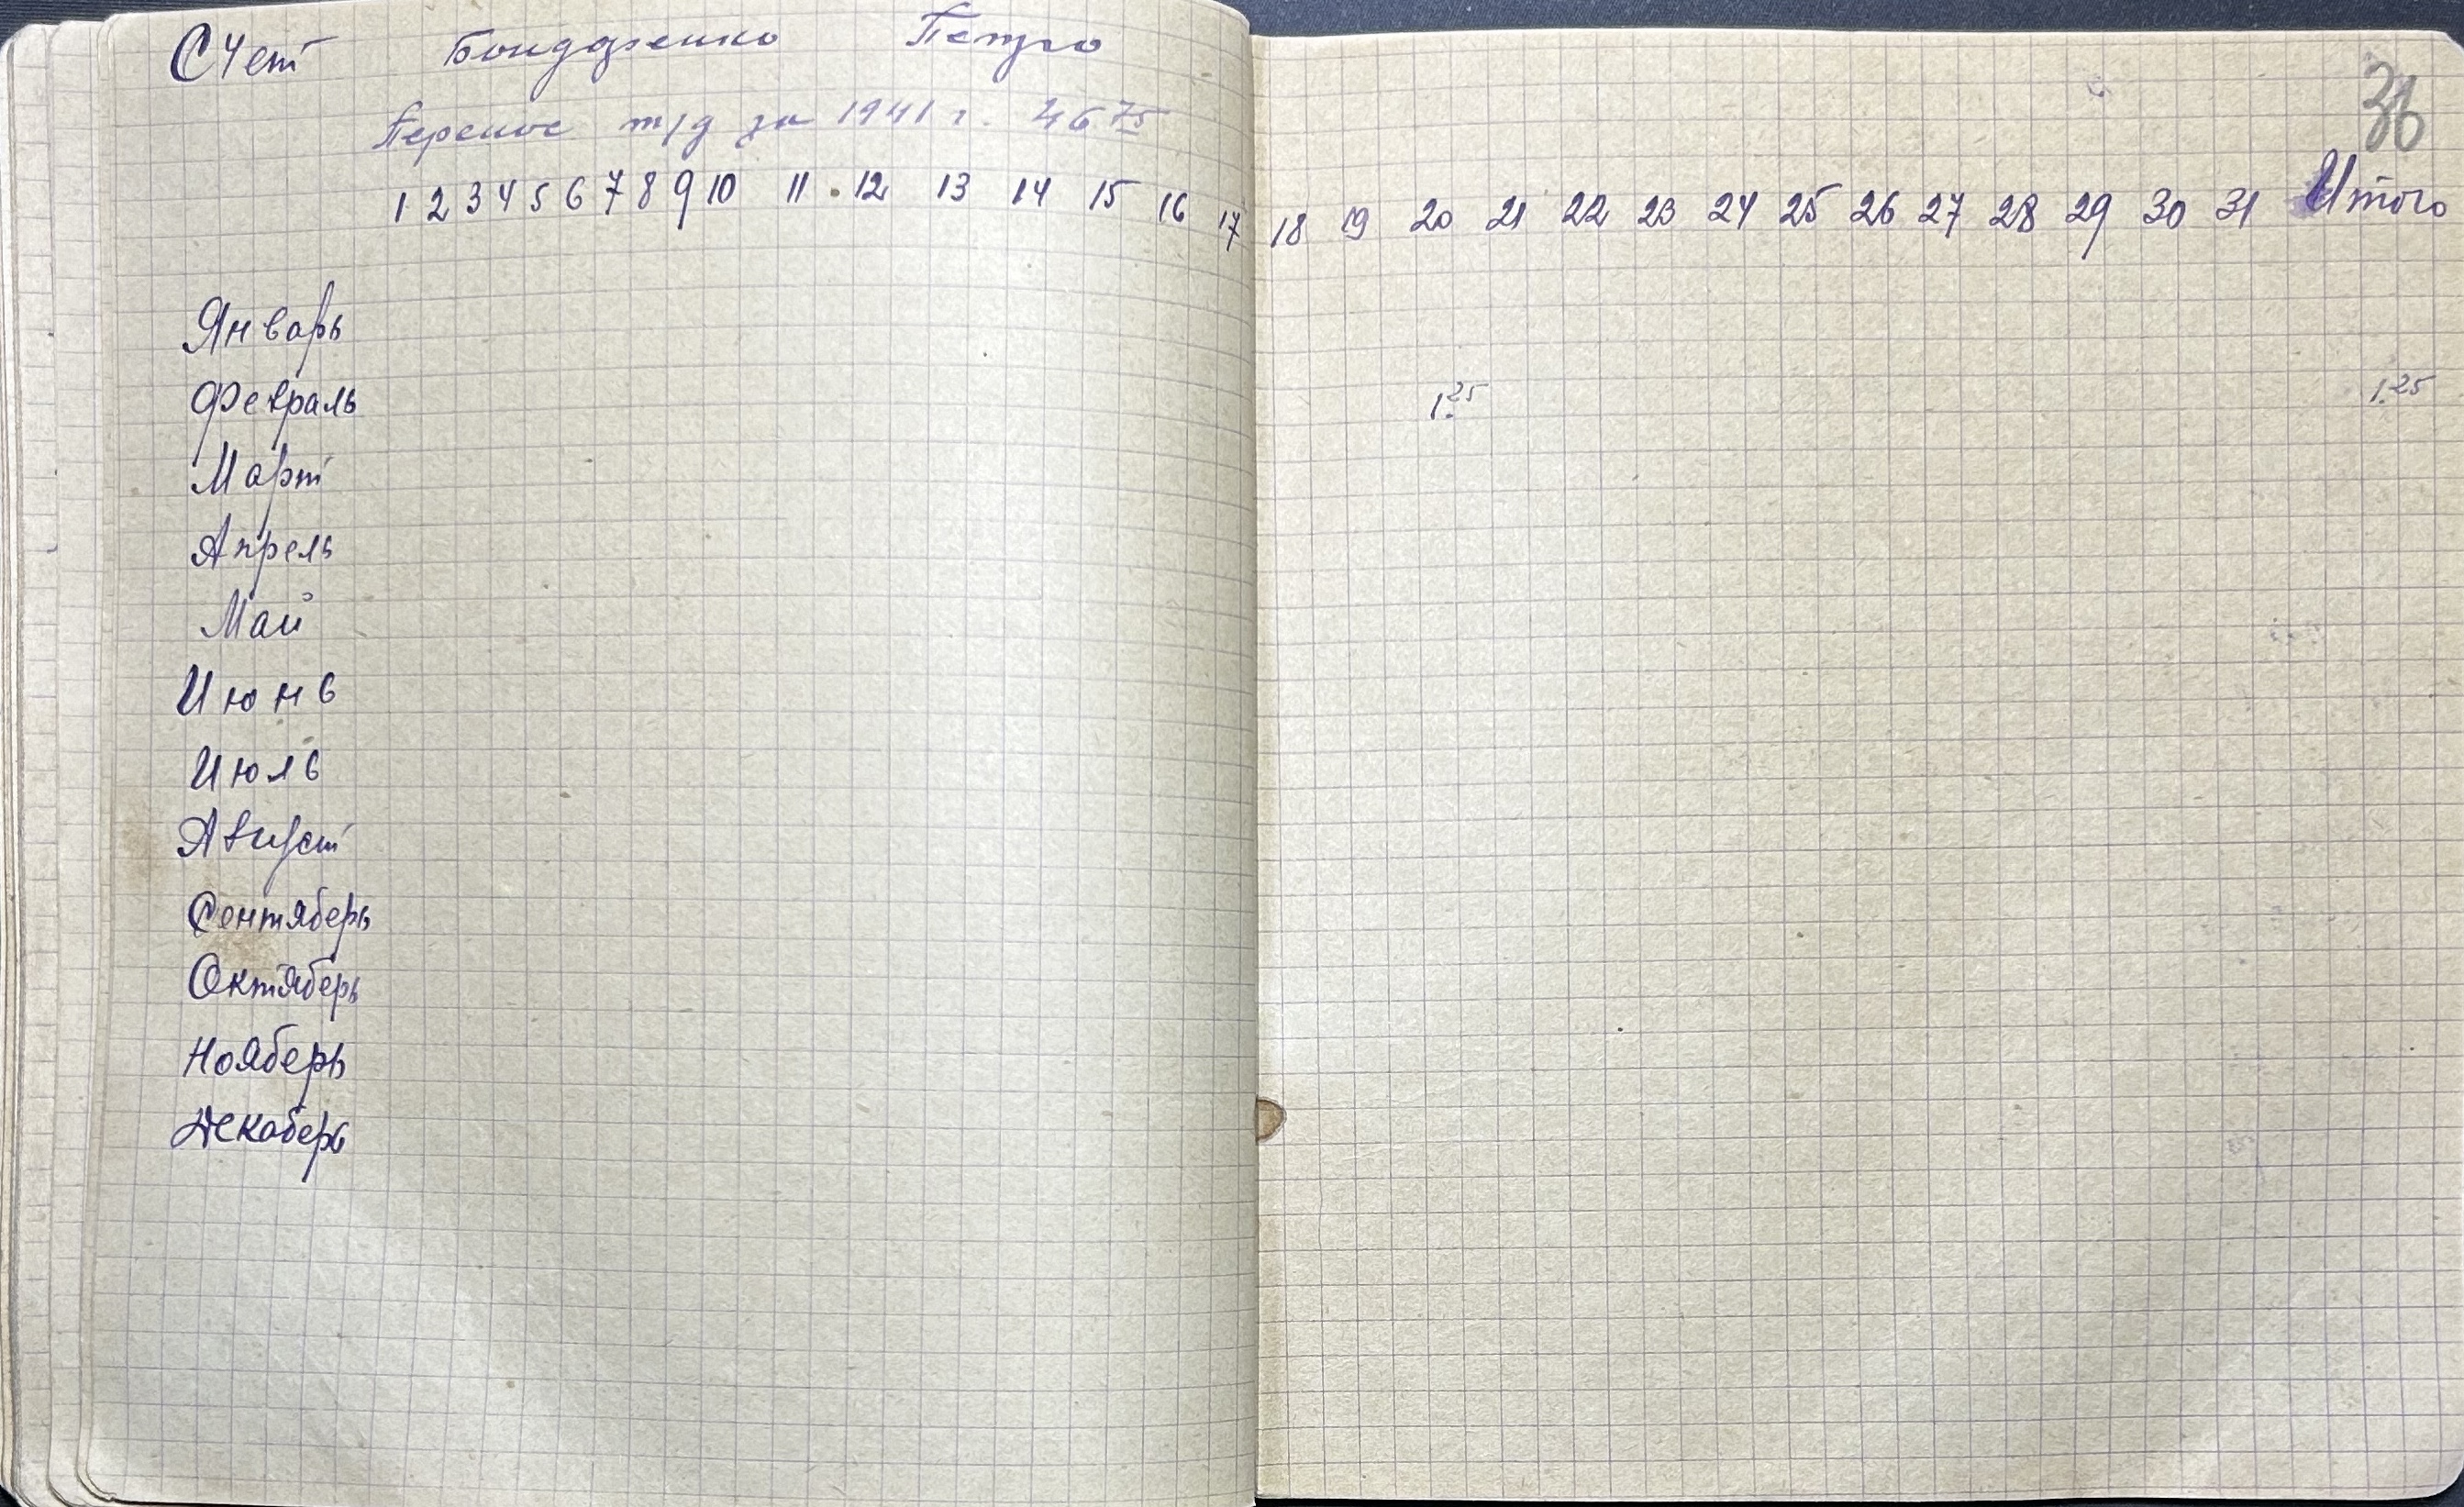 Счет Бондаренко Петро
36
Перенос т/д за 1941 г. 46 75
1 2 3 4 5 6 7 8 9 10 11 12 13 14 15 16 17 18 19 20 21 22 23 24 25 26 27 28 29 30 31 Итого
Январь
Февраль 1.25 1.25
Март
Апрель
Май
Июнь
Июль
Август
Сентяберь
Октяберь
Нояберь
Декаберь